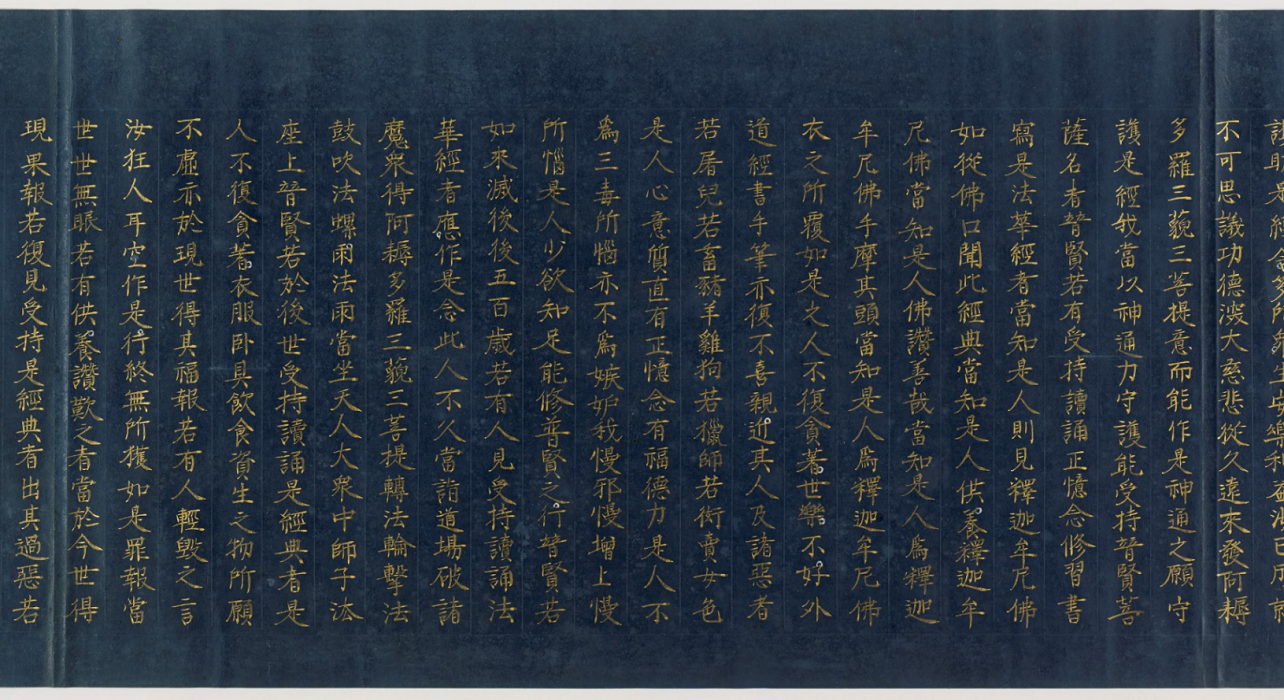 不可思議功德深大慈悲從久遠來發阿耨
多羅三藐三菩提意而能作是神通之願守
護是經我當以神通力守護能受持普賢菩
薩名者普賢若有受持讀誦正憶念修習書
寫是法華經者當知是人則見釋迦牟尼佛
如從佛口聞此經典當知是人供養釋迦牟
尼佛當知是人佛讚善哉當知是人為釋迦
牟尼佛手摩其頭當知是人為釋迦牟尼佛
衣之所覆如是之人不復貪著世樂不好外
道經書手筆亦復不喜親近其人及諸惡者
若屠兒若畜猪羊雞狗若獵師若衒賣女色
是人心意質直有正憶念有福德力是人不
為三毒所惱亦不為嫉妬我慢邪慢增上慢
所惱是人少欲知足能修普賢之行普賢若
如來滅後後五百歲若有人見受持讀誦法
華經者應作是念此人不久當詣道場破諸
魔眾得阿耨多羅三藐三菩提轉法輪擊法
鼓吹法螺雨法雨當坐天人大眾中師子法
座上普賢若於後世受持讀誦是經典者是
人不復貪著衣服卧具飲食資生之物所願
不虛亦於現世得其福報若有人輕毀之言
汝狂人耳空作是行終無所獲如是罪報當
世世無眼若有供養讚歎之者當於今世得
現果報若復見受持是經典者出其過惡若